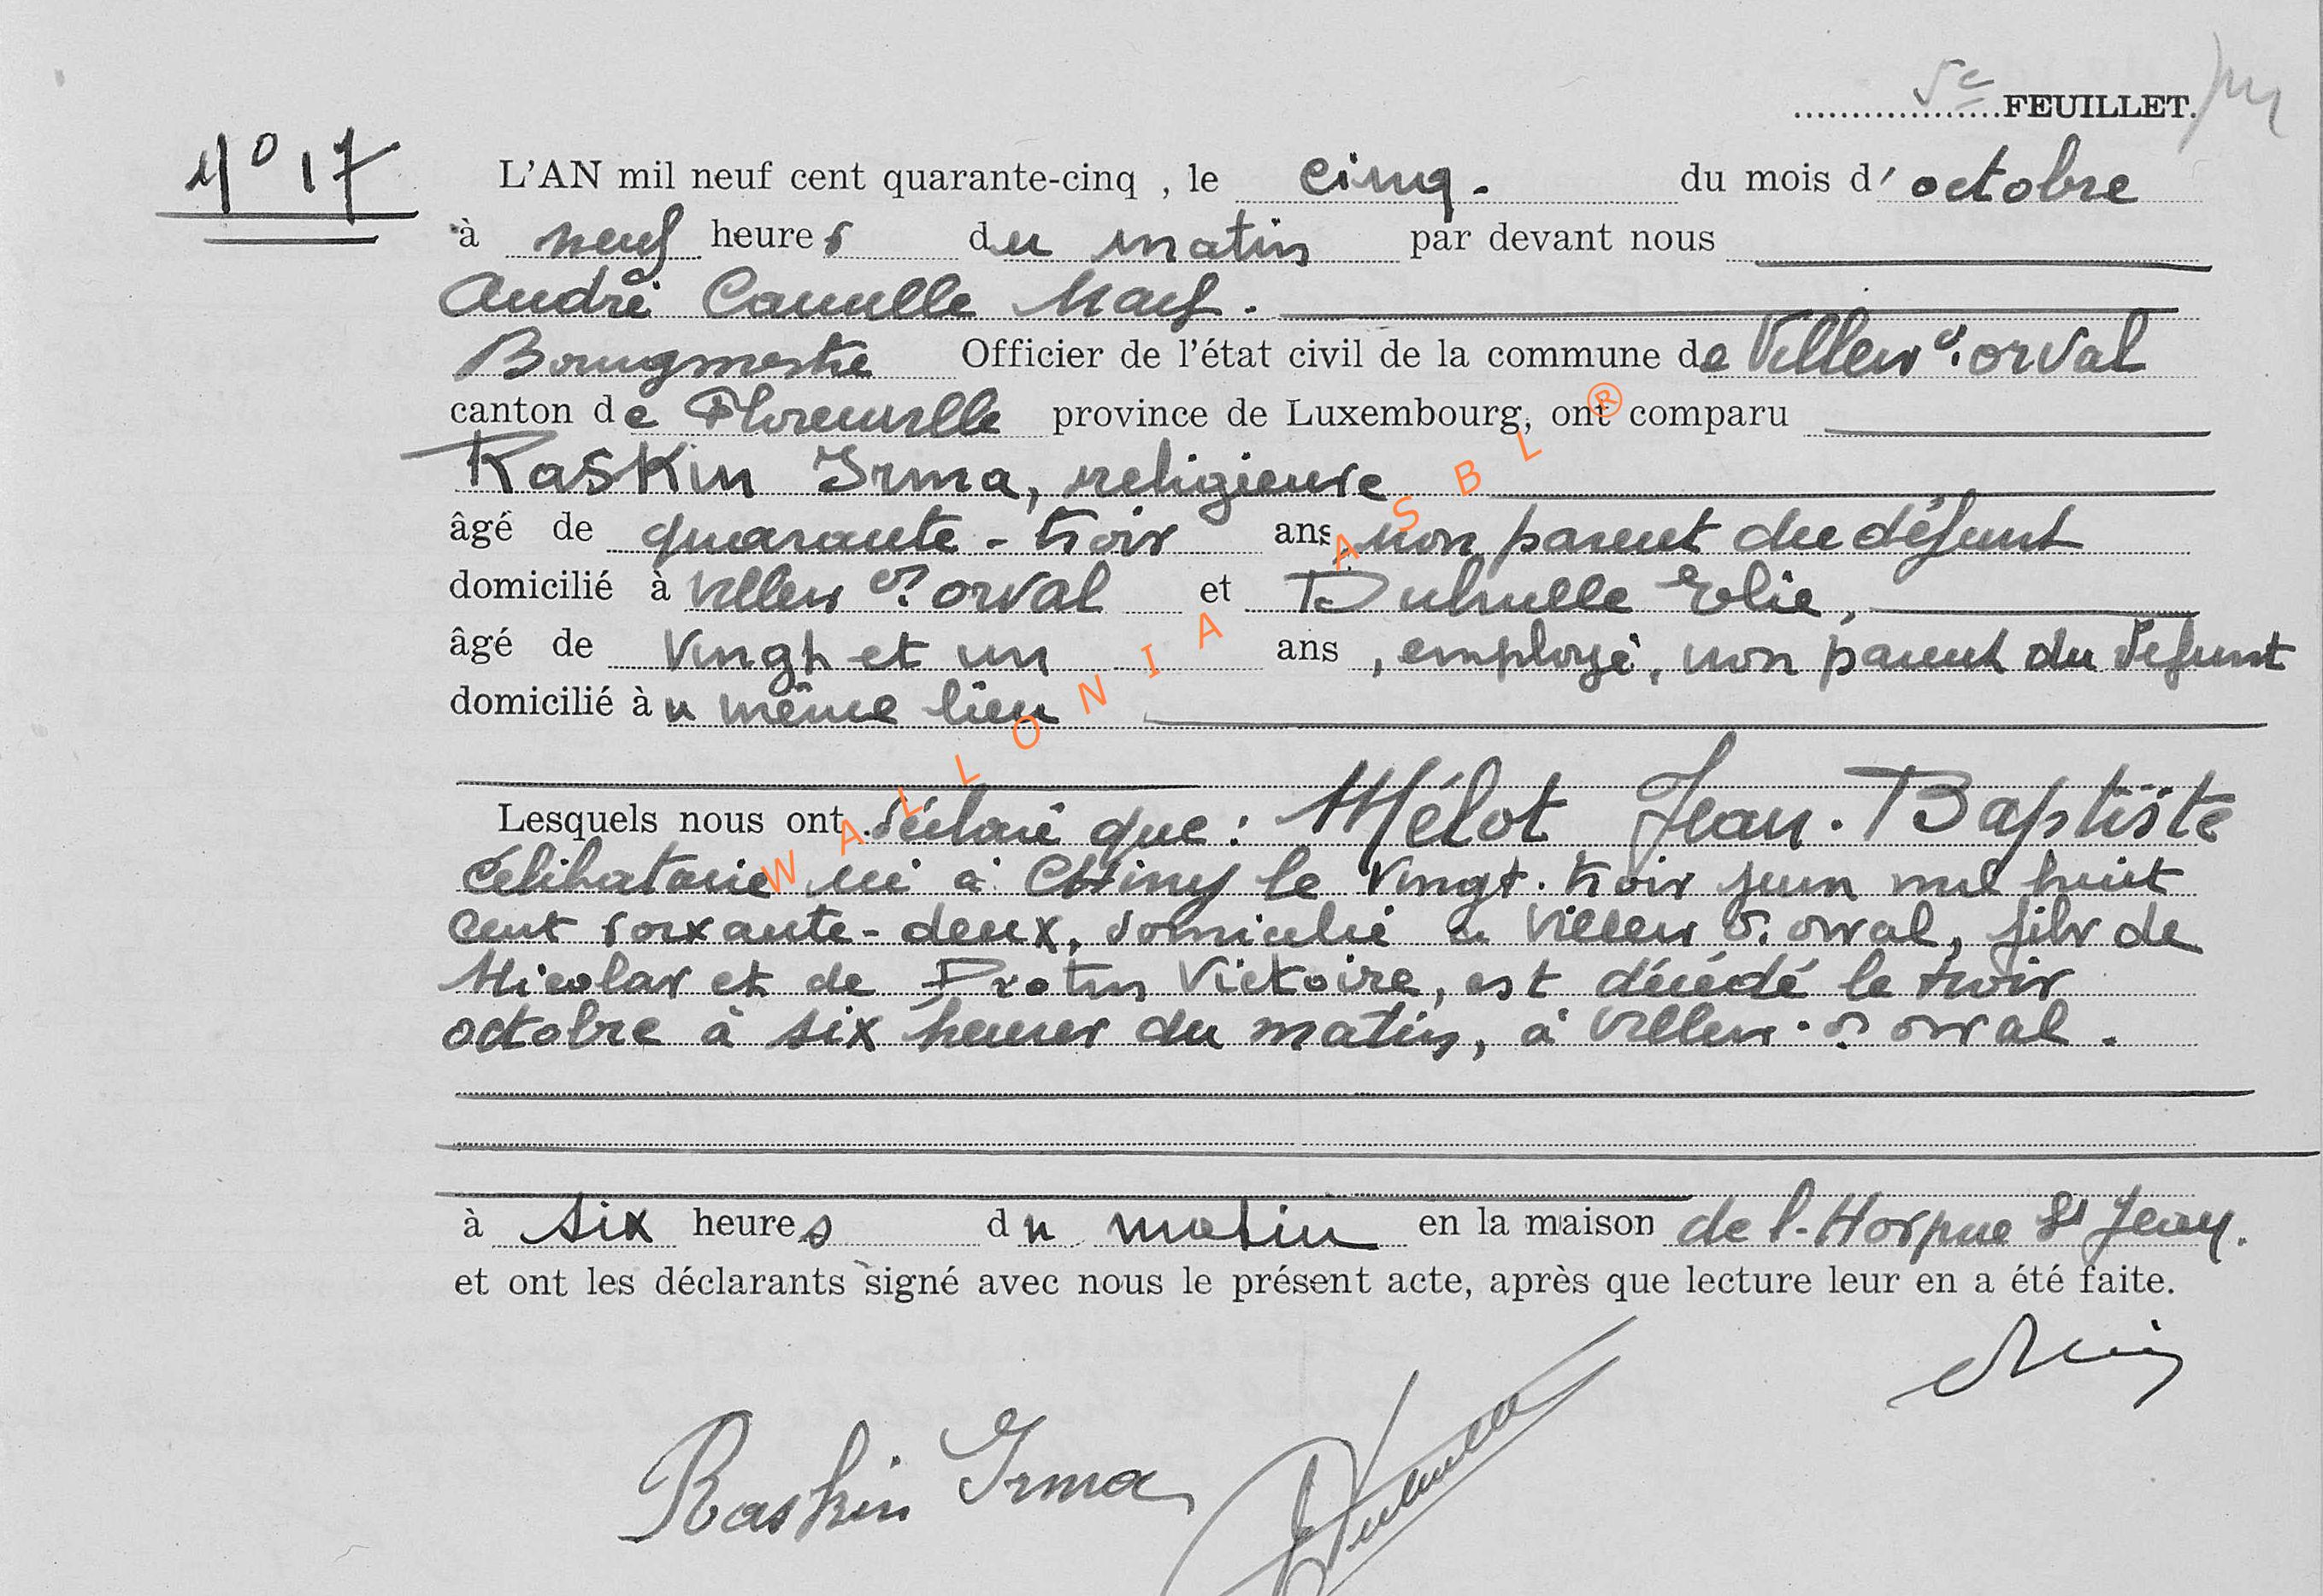 5e FEUILLET.
N° 17
L'AN mil neuf cent quarante-cinq , le cinq. du mois d' octobre
à neuf heures du matin par devant nous
André Camille Marf.
Bourgmestre Officier de l'état civil de la commune de Villers d. orval
canton de Florenville province de Luxembourg, ont comparu
Raskin Irma, religieuse
âgé de quarante-trois ans, non parent du défunt
domicilié à Villers d. orval et Duhulle Elie,
âgé de vingt et un ans , employé, non parent du défunt
domicilié àu même lieu
Lesquels nous ont déclaré que : Mélot Jean-Baptiste
célibataire né à Chiny le vingt-trois juin mil huit
cent soixante-deux, domicilié à Villers d. orval, fils de
Nicolas et de Protin Victoire, est décédé le trois
octobre à six heures du matin, à Villers d. orval.
à six heures du matin en la maison de l'Hospice St Jean.
et ont les déclarants signé avec nous le présent acte, après que lecture leur en a été faite.
Raskin Irma
WALLONIA ASBL ®